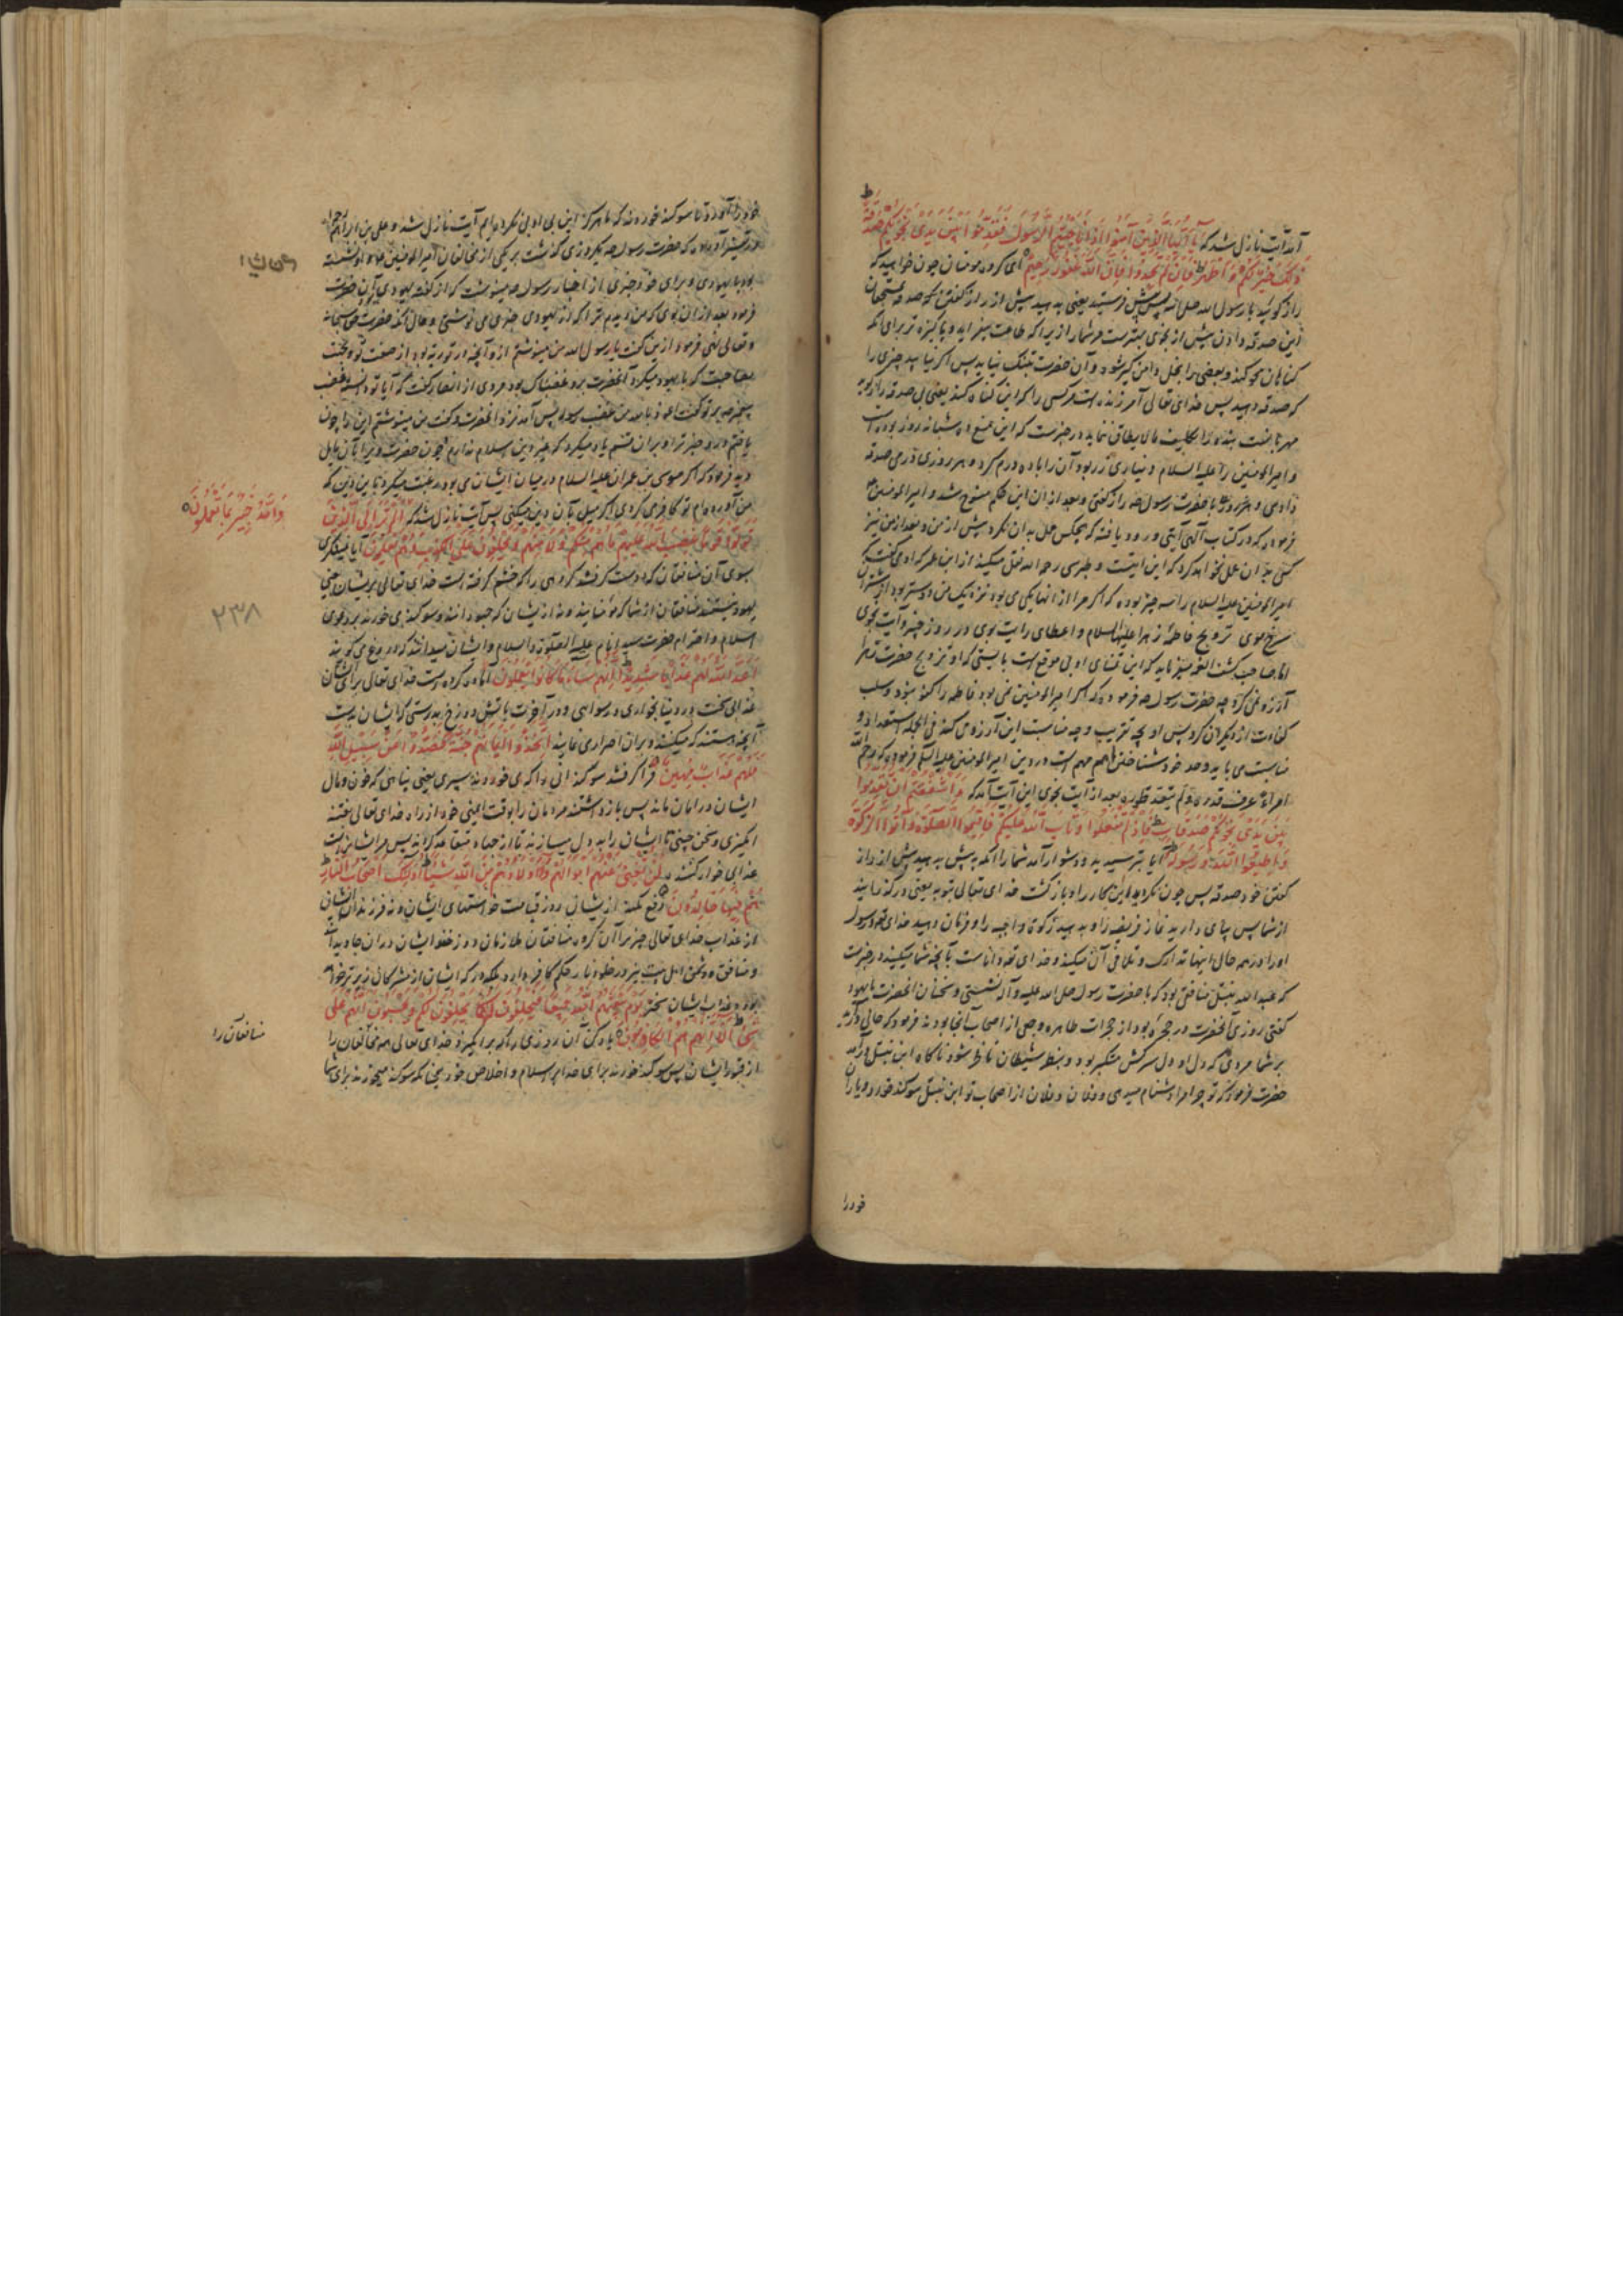 آنه آیت نازل شد که یَا اَیُّهَا الَّذِینَ آمَنُوا اِذَا نَاجَیْتُمُ الرَّسُولَ فَقَدِّمُوا بَیْنَ یَدَیْ نَجْوٰیکُمْ صَدَقَةً
ذٰلِکَ خَیْرٌ لَکُمْ وَ اَطْهَرُ فَاِنْ لَمْ تَجِدُوا فَاِنَّ اللّٰهَ غَفُورٌ رَحِیمٌ ای گروه مومنان چون خواهید که
راز گوئید با رسول الله صلی الله پس پیش فرستید یعنی بدهید پیش از راز گفتن صدقه مستحقان
این صدقه دادن پیش از نجوی بهترست مر شما را زیرا که طاعت بیفزاید و پاکیزه تر برای آنکه
گناهان محو کند و بعضی را بخل دامن گیر شود و آن حضرت تنگ نیاید پس اگر نیابید چیزی را
که صدقه دهید پس خدای تعالی آمرزنده است مر کسی را که این گناه کند یعنی بی صدقه راز گوید
مهربانست بنده را تکلیف مالایطاق ننماید در خبرست که این منع ده شبانه روز بوده است
و امیر المومنین را علیه السلام دیناری زر بود آن را بده درم کرد و هر روزی درمی صدقه
دادی و هر روز با حضرت رسول راز گفتی و بعد از آن این حکم منسوخ شد و امیر المومنین
فرموده که در کتاب الهی آیتی ورود یافته که هیچکس عمل بدان نکرد پیش از من و بعد از من نیز
کسی بدان عمل نخواهد کرد که این آیتست و طبرسی رحمه الله نقل میکند از ابن عمر که او می گفت که
امیر المومنین علیه السلام را سه چیز بوده که اگر مرا از آنها یکی می بود نزدیک من دوستر بود از شتران
سرخ موی تزویج فاطمه زهرا علیها السلام و اعطای رایت بوی در روز خیبر و آیت نجوی
اما صاحب کشف الغمه میفرماید که این تمنای او بی موقع است بایستی که او تزویج حضرت زهرا
آرزو نمی کرد چه حضرت رسول فرموده که اگر امیر المومنین نمی بود فاطمه را کفو نبود و سلب
کفاءت از دیگران کرد پس او بچه تقریب و چه مناسبت این آرزو می کند فی الجمله استعداد و
مناسبت می باید و حد خود شناختن اهم مهم است و در دین امیر المومنین علیه السلم فرموده که رحم الله
امراء عرف قدره و لم یتعد طوره بعد از آیت نجوی این آیت آمد که ءَاَشْفَقْتُمْ اَنْ تُقَدِّمُوا
بَیْنَ یَدَیْ نَجْوٰیکُمْ صَدَقَاتٍ فَاِذْ لَمْ تَفْعَلُوا وَتَابَ اللّٰهُ عَلَیْکُمْ فَاَقِیمُوا الصَّلٰوةَ وَآتُوا الزَّکٰوةَ
وَ اَطِیعُوا اللّٰهَ وَ رَسُولَهُ آیا بترسیدید و دشوار آمد شما را آنکه بدهید پیش از راز
گفتن خود صدقه پس چون نکردید این کار را و بازگشت خدای تعالی بتوبه یعنی در گذرانید
از شما پس بپای دارید نماز فریضه را و بدهید زکوة واجبه را و فرمان دهید خدای و رسول
او را در همه حال اینها تدارک و تلافی آن میکند و خدای داناست بآنچه شما میکنید در خبرست
که عبد الله نبتل منافق بود که با حضرت رسول صلی الله علیه و آله نشستی و سخنان آنحضرت با یهود
گفتی روزی آنحضرت در حجره بود از حجرات طاهره و جمعی از اصحاب آنجا بودند فرمود که حالی درآید
بر شما مردی که دل او دل سرکش متکبر بود و بنظر شیطان ناظر شود ناگاه ابن نبتل درآمد
حضرت فرمود که تو چرا مرا دشنام میدهی و فلان و فلان از اصحاب تو ابن نبتل سوگند خورد و یاران
خود را
خود را آورد و تا سوگند خوردند که ما هرگز این بی ادبی نکرده ایم آیت نازل شد و علی بن ابراهیم
در تفسیر آورده که حضرت رسول یکروزی گذشت بر یکی از مخالفان امیر المومنین نشسته
بود با یهودی و برای خود چیزی از اخبار رسول مینوشت که از گفته یهودی آن حضرت
فرمود بعد از آن بوی که من دیدم ترا که از یهودی چیزی می نوشتی و حال آنکه حضرت حق سبحانه
و تعالی نهی فرمود ازین گفت یا رسول الله من مینوشتم ازو آنچه در توریة بود از صفت تو و گفت
من آورده ام تو کافر می گردی اگر میل بآن دین میکنی پس آیت نازل شد که اَلَمْ تَرَ اِلَی الَّذِینَ
تَوَلَّوْا قَوْمًا غَضِبَ اللّٰهُ عَلَیْهِمْ مَا هُمْ مِنْکُمْ وَلَا مِنْهُمْ وَیَحْلِفُونَ عَلَی الْکَذِبِ وَهُمْ یَعْلَمُونَ آیا نمینگری
بسوی آن منافقان که دوست گرفتند گروهی را که خشم گرفته است خدای تعالی بریشان یعنی
یهود نیستند منافقان از شما که مومنانید و نه ازیشان که جهودانند و سوگند می خورند بر دعوی
اسلام و احترام حضرت سید انام علیه الصلوة والسلام و ایشان میدانند که دروغ می گویند
اَعَدَّ اللّٰهُ لَهُمْ عَذَابًا شَدِیدًا اِنَّهُمْ سَاءَ مَا کَانُوا یَعْمَلُونَ آماده کرده است خدای تعالی برای ایشان
عذابی سخت در دنیا بخواری و رسوایی و در آخرت باتش دوزخ بدرستی که ایشان بدست
آنچه هستند که میکنند و بران اصرار می نمایند اِتَّخَذُوا اَیْمَانَهُمْ جُنَّةً فَصَدُّوا عَنْ سَبِیلِ اللّٰهِ
فَلَهُمْ عَذَابٌ مُهِینٌ فرا گرفتند سوگندانی را که می خوردند سپری یعنی پناهی که خون و مال
ایشان در امان ماند پس باز داشتند مردمان را بوقت ایمنی خود از راه خدای تعالی بفتنه
انگیزی و سخن چینی تا ایشان را بددل میسازند تا از جهاد تقاعد کردند پس مر ایشانراست
عذابی خوار کننده لَنْ تُغْنِیَ عَنْهُمْ اَمْوَالُهُمْ وَلَا اَوْلَادُهُمْ مِنَ اللّٰهِ شَیْئًا اُولٰئِکَ اَصْحَابُ النَّارِ
هُمْ فِیهَا خَالِدُونَ دفع نکند ازیشان روز قیامت خواستهای ایشان و نه فرزندان ایشان
از عذاب خدای تعالی چیزی را آن گروه منافقان ملازمان دوزخند ایشان دران جاویدند
و منافق و دشمن اهل بیت نیز در خلود نار حکم کافر دارد بلکه در که ایشان از مشرکان زیرتر خواهد
بود و عذاب ایشان سختر یَوْمَ یَبْعَثُهُمُ اللّٰهُ جَمِیعًا فَیَحْلِفُونَ لَهُ کَمَا یَحْلِفُونَ لَکُمْ وَیَحْسَبُونَ اَنَّهُمْ عَلٰی
شَیْءٍ اَلَا اِنَّهُمْ هُمُ الْکَاذِبُونَ یاد کن آن روزی را که برانگیزد خدای تعالی همه مخالفان را
از قبور ایشان پس سوگند خورند برای خدا بر اسلام و اخلاص خود چنانکه سوگند میخورند برای شما
وَاللّٰهُ خَبِیرٌ بِمَا تَعْمَلُونَ
۲۳۸
منافقان را